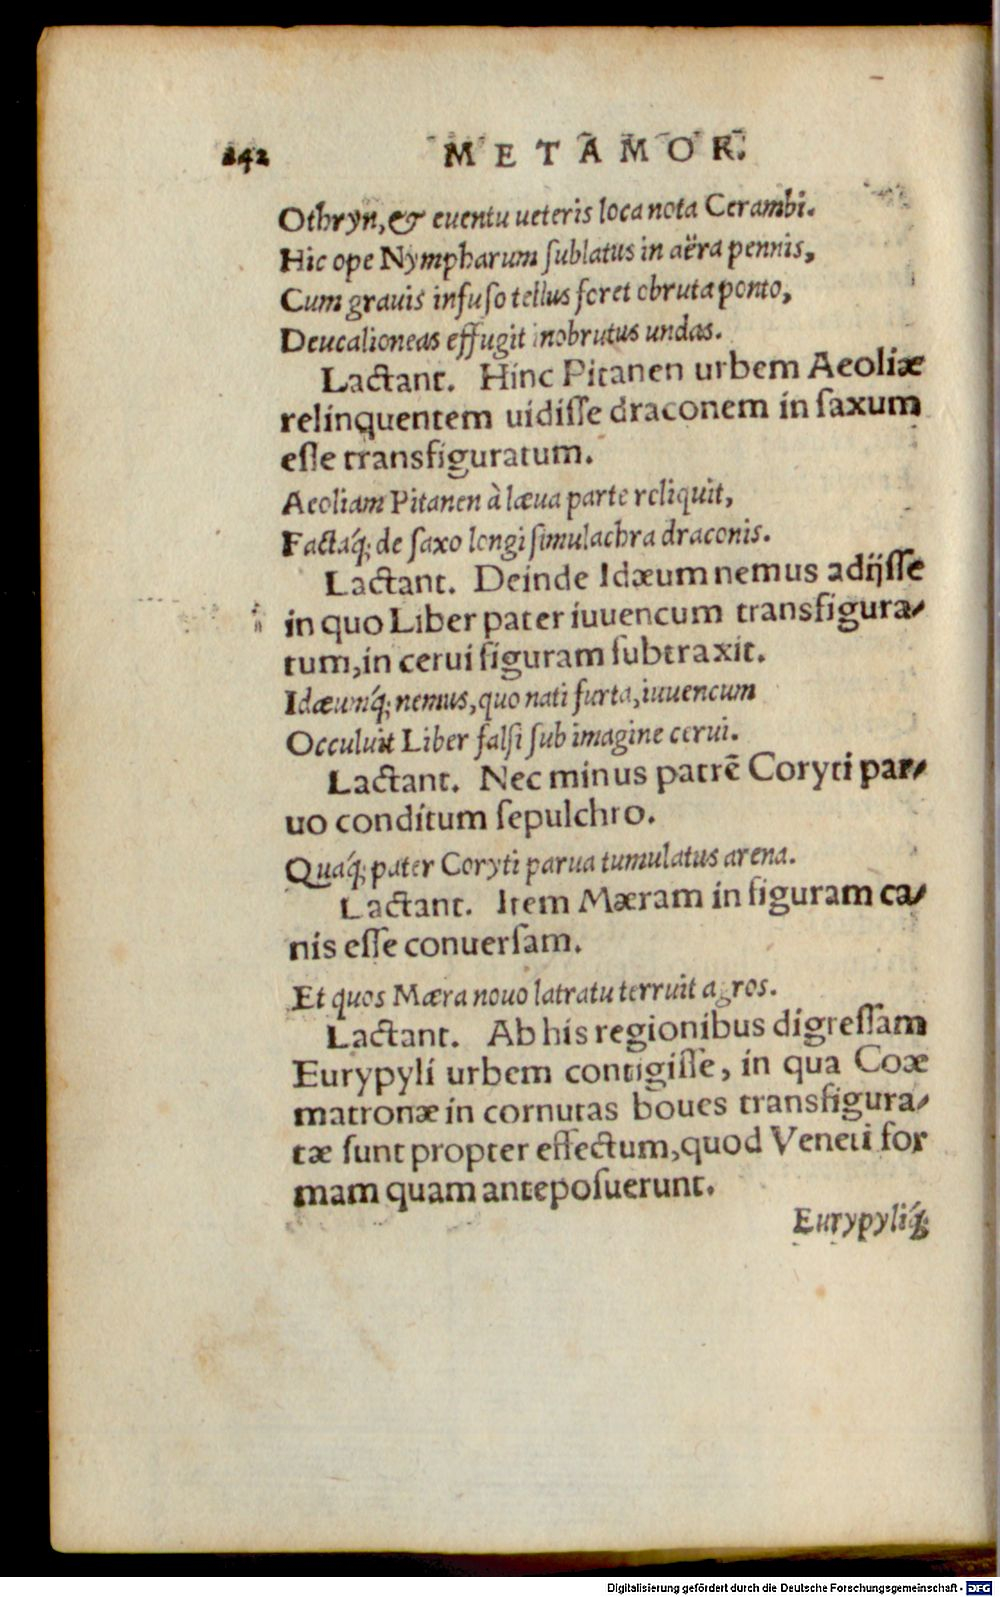 242 METAMOR.
Othryn, & euentu ueteris loca nota Cerambi.
Hic ope Nympharum ſublatus in aëra pennis,
Cum grauis infuſo tellus foret obruta ponto,
Deucalioneas effugit inobrutus undas.
Lactant. Hinc Pitanen urbem Aeoliæ
relinquentem uidiſſe draconem in ſaxum
eſſe transfiguratum.
Aeoliam Pitanen à læua parte reliquit,
Factaq́; de ſaxo longi ſimulachra draconis.
Lactant. Deinde Idæum nemus adijſſe
in quo Liber pater iuuencum transfigura-
tum, in cerui figuram ſubtraxit.
Idæumq́; nemus, quo nati furta, iuuencum
Occuluit Liber falſi ſub imagine cerui.
Lactant. Nec minus patrē Coryti par-
uo conditum ſepulchro.
Quaq́; pater Coryti parua tumulatus arena.
Lactant. Item Mæram in figuram ca-
nis eſſe conuerſam.
Et quos Mæra nouo latratu terruit agros.
Lactant. Ab his regionibus digreſſam
Eurypyli urbem contigiſſe, in qua Coæ
matronæ in cornutas boues transfigura-
tæ ſunt propter effectum, quod Veneti for
mam quam antepoſuerunt.
Eurypyliq́;
Digitalisierung gefördert durch die Deutsche Forschungsgemeinschaft - DFG